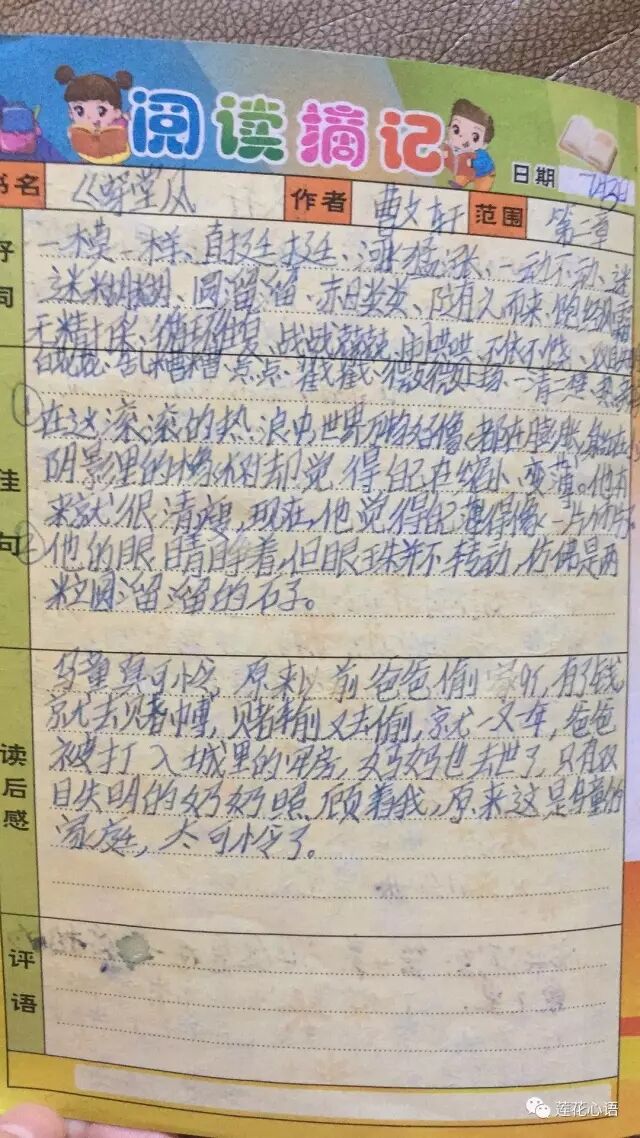 阅读摘记
日期 7月3日
书名 《穿堂风 作者 曹文轩 范围 第二章
好词
一模一样、直挺挺、河水猛涨、一动不动、迷
迷糊糊、圆溜溜、赤日炎炎、随有人而来、饱经风霜
无精打采、循环往复、战战兢兢、闹哄哄、不依不饶、双目
白花花、乱糟糟、点点、戳戳、微微上扬、一清二楚、
佳句
①在这滚滚的热浪中世界万物好像都在膨胀,躲在
阴影里的橡树却觉得自己在缩小、变薄。他本
来就很清瘦,现在,他觉得自己薄得像一片竹片
②他的眼睛睁着,但眼珠并不转动,仿佛是两
粒圆溜溜的石子。
读后感
乌童真可怜,原来以前爸爸偷东西,有了钱
就去赌博,赌输了又去偷,就一次一年,爸爸
被打入城里的牢房,妈妈也去世了,只有双
目失明的奶奶照顾着我,原来这是乌童的
家庭,太可怜了。
评语
莲花心语